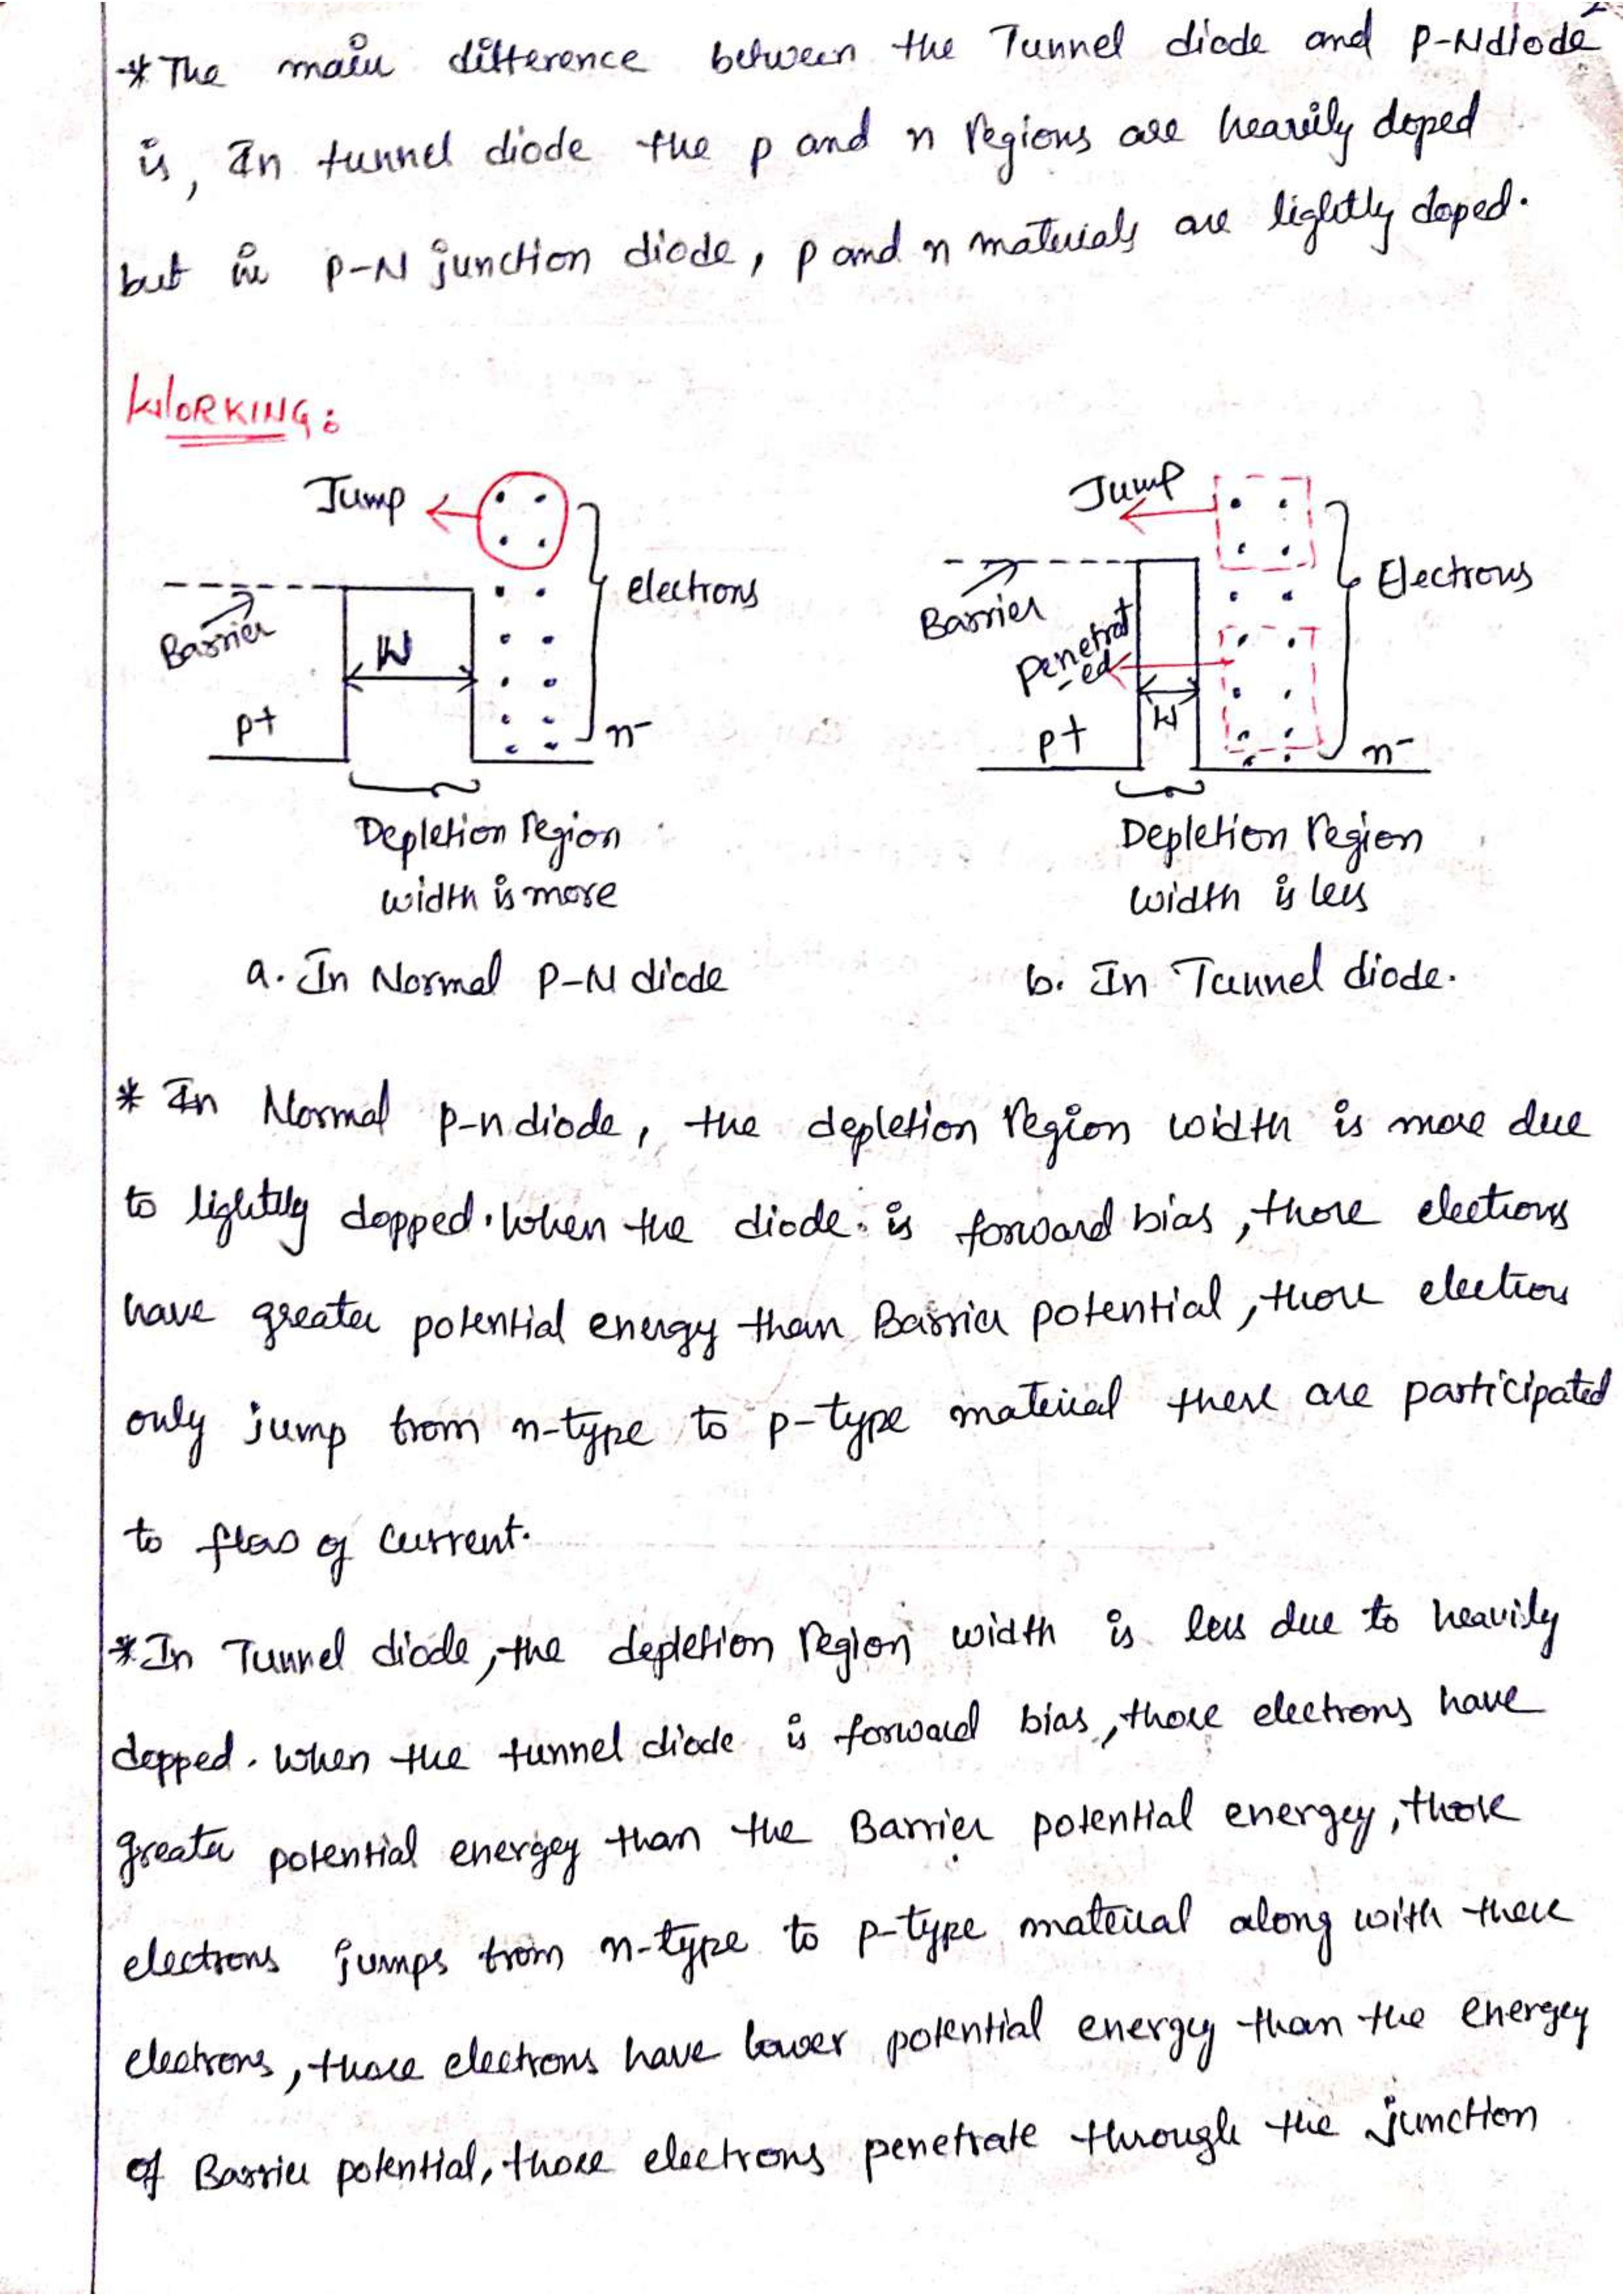 *The main difference between the Tunnel diode and P-N diode
is, In tunnel diode the p and n regions are heavily doped
but in P-N junction diode, p and n materials are lightly doped.
WORKING:
Jump
electrons
Barrier
W
p+
n-
Depletion region
width is more
a. In Normal P-N diode
Jump
Electrons
Barrier
Penetrat
-ed
W
p+
n-
Depletion region
width is less
b. In Tunnel diode.
* In Normal p-n diode, the depletion region width is more due
to lightly dopped. When the diode is forward bias, those electrons
have greater potential energy than Barrier potential, those electrons
only jump from n-type to p-type material these are participated
to flow of current.
*In Tunnel diode, the depletion region width is less due to heavily
dopped. When the tunnel diode is forward bias, those electrons have
greater potential energey than the Barrier potential energey, those
electrons jumps from n-type to p-type material along with these
electrons, those electrons have lower potential energy than the energey
of Barrier potential, those electrons penetrate through the junction